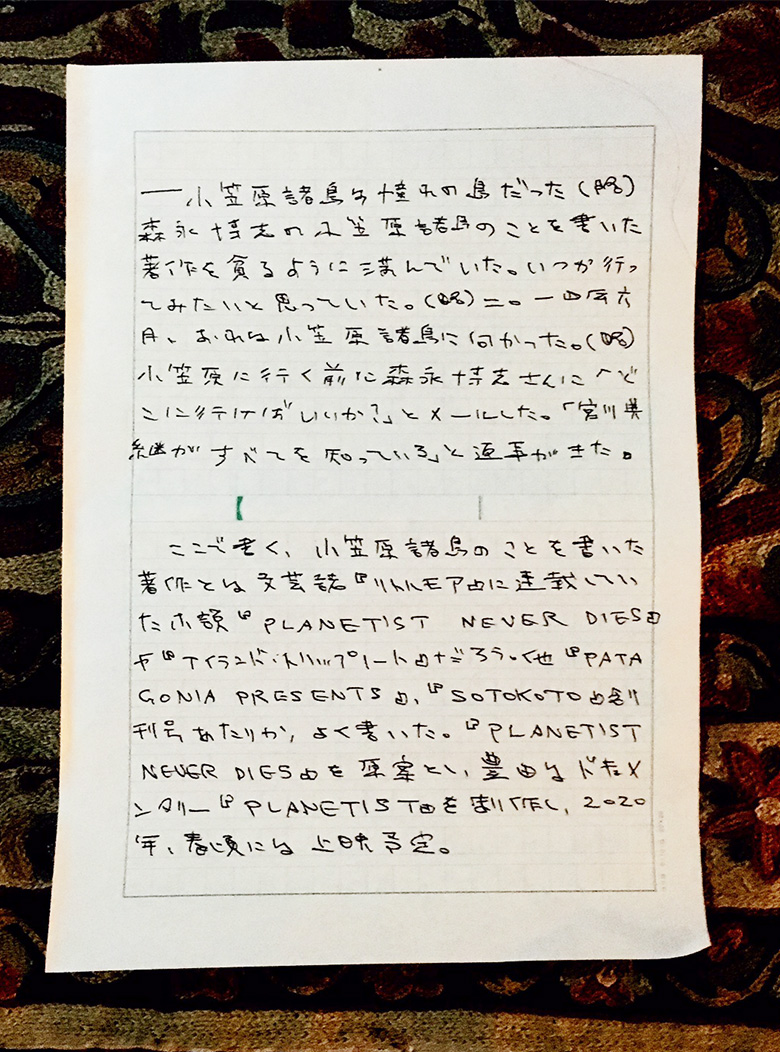 一小笠原諸島は憧れの島だった(略)
森永博志の小笠原諸島のことを書いた
著作を貪るように読んでいた。いつか行っ
てみたいと思っていた。(略)二〇一四年六
月、おれは小笠原諸島に向かった。(略)
小笠原に行く前に森永博志さんに「ど
こに行けばいいか?」とメールした。「宮川典
継がすべてを知っている」と返事がきた。
ここで書く、小笠原諸島のことを書いた
著作とは文芸誌『リトルモア』に連載してい
た『PLANETIST NEVER DIES』
や『アイランド・トリップノート』だろう。他『PATA
GONIA PRESENTS』、『SOTOKOTO』創
刊号あたりか、よく書いた。『PLANETIST
NEVER DIES』を原案とし、豊田はドキュメ
ンタリー『PLANETIST』を制作し、2020
年、春頃には上映予定。